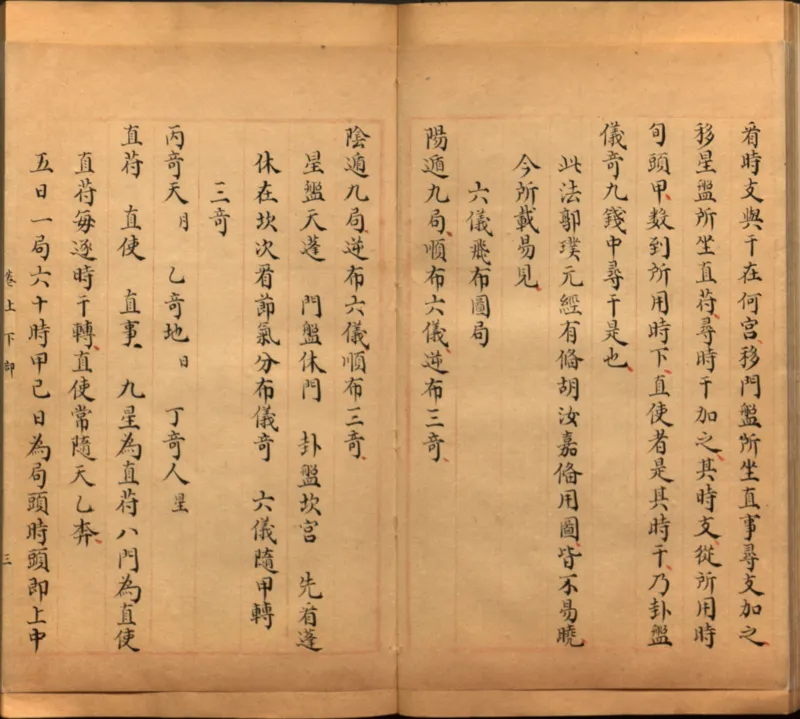 看時支與干在何宮移門盤所坐直事尋支加之
移星盤所坐直苻尋時干加之其時支從所用時
旬頭甲數到所用時下直使者是其時干乃卦盤
儀奇九錢中尋干是也
此法郭璞元經有俻胡汝嘉俻用圖皆不易曉
今所載易見
六儀飛布圖局
陽遁九局順布六儀逆布三竒
陰遁九局逆布六儀順布三竒
星盤天蓬 門盤休門 卦盤坎宮 先看蓬
休在坎次看節氣分布儀竒 六儀隨甲轉
三竒
丙竒天月 乙竒地日 丁竒人星
直苻 直使 直事 九星為直苻八門為直使
直苻每逐時干轉直使常隨天乙奔
五日一局六十時甲己日為局頭時頭即上中
卷上 下卸 三